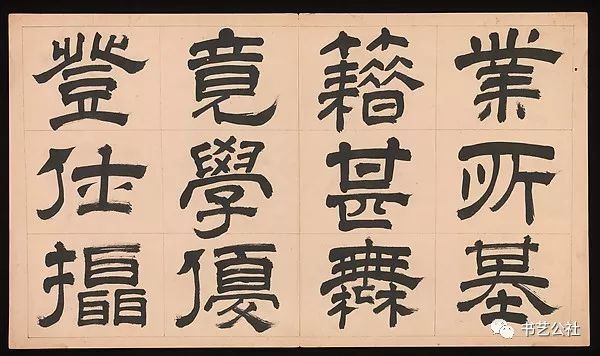 業所基
籍甚無
竟學優
登仕攝
书艺公社